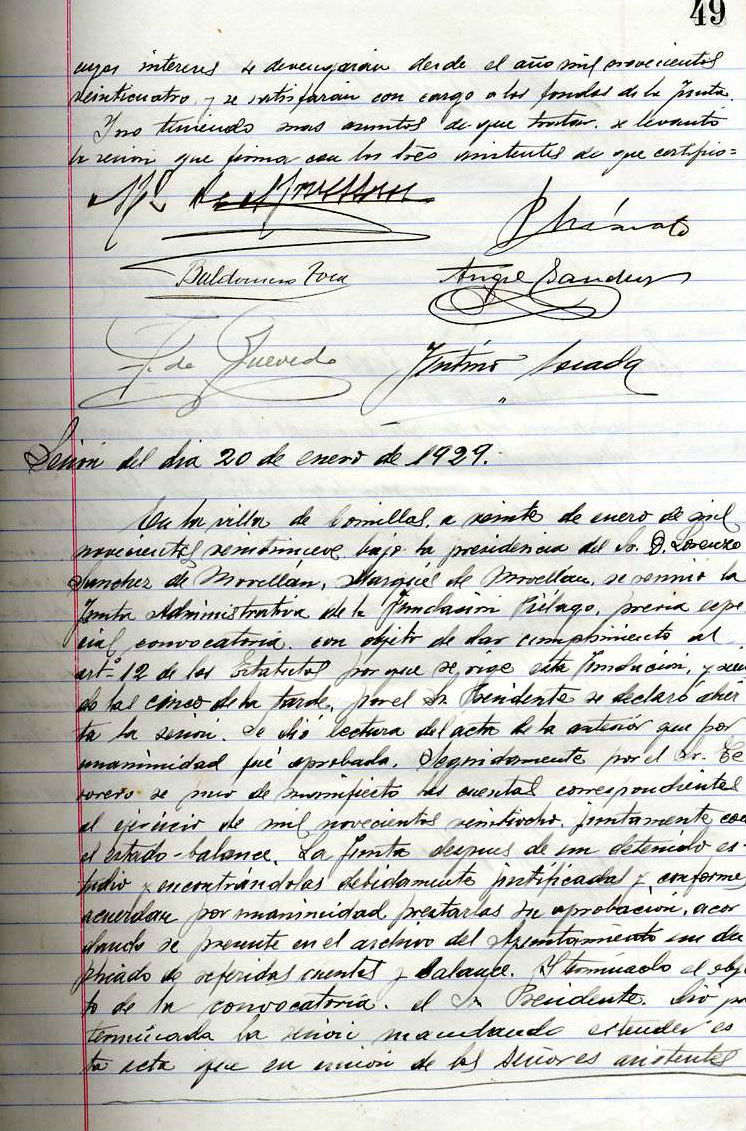 49
cuyos intereses se devengarán desde el año mil novecientos
veinticuatro, y se satisfarán con cargo a los fondos de la Junta.
Y no teniendo mas asuntos de que tratar, se levantó
la sesión que firma con los tres asistentes de que certifico=
Baldomero Toca
Angel Sanchez
F. de Quevedo
Sesión del dia 20 de enero de 1929.
En la villa de Comillas, a veinte de enero de mil
novecientos veintinueve bajo la presidencia del Sr. D. Lorenzo
Sanchez de Movellán, Marqués de Movellan, se reunió la
Junta Administrativa de la Fundación Piélago, previa espe
cial convocatoria, con objeto de dar cumplimiento al
artº 12 de los Estatutos por que se rige esta Fundación, y sien
do las cinco de la tarde, por el Sr. Presidente se declaró abier
ta la sesión. Se dió lectura del acta de la anterior que por
unanimidad fué aprobada. Seguidamente por el Sr. Te
sorero se puso de manifiesto las cuentas correspondientes
al ejercicio de mil novecientos veintiocho, juntamente con
el estado-balance. La Junta despues de un detenido es-
tudio y encontrándolas debidamente justificadas y conforme,
acuerdan por unanimidad prestarlas su aprobación, acor
dando se presente en el archivo del Ayuntamiento un du
plicado de referidas cuentas y balance. Y terminado el obje
to de la convocatoria, el Sr. Presidente, dió por
terminada la sesión, mandando estender es
ta acta que en unión de los señores asistentes